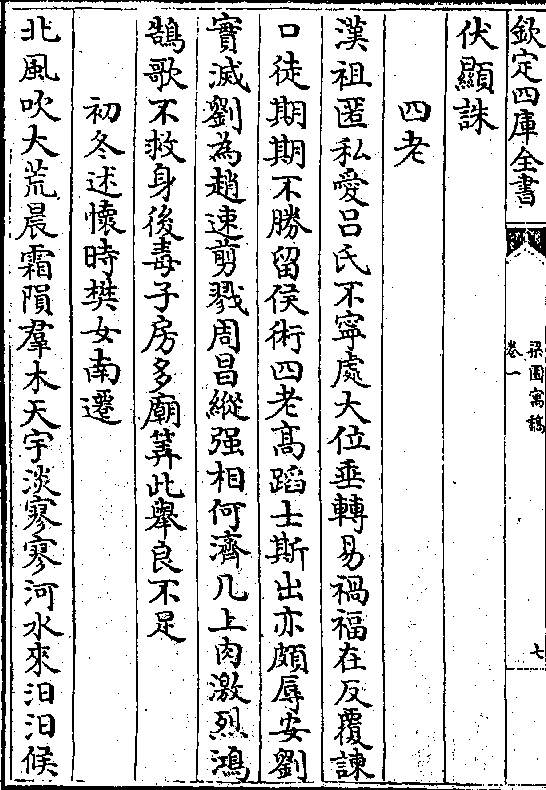 欽定四庫全書
梁園寓稿
卷一
七
伏顯誅
四老
漢祖匿私愛吕氏不寧處大位垂轉易禍福在反覆諫
口徒期期不勝留侯術四老髙蹈士斯出亦頗辱安劉
實滅劉為趙速剪戮周昌縱强相何濟几上肉激烈鴻
鵠歌不救身後毒子房多廟筭此舉良不足
初冬述懷時樊女南遷
北風吹大荒晨霜隕羣木天宇淡寥寥河水來汨汨候